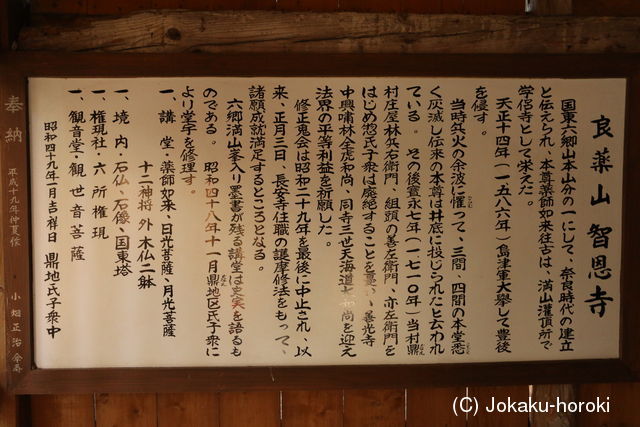 良薬山 智恩寺
国東六郷山本山分の一にして、奈良時代の建立
と伝えられ、本尊薬師如来往古は、満山灌頂所で
学侶寺として栄えた。
天正十四年(一五八六年)島津軍大挙して豊後
を侵す。
当時兵火の余波に罹って、三間、四間の本堂悉
く灰滅し伝来の本尊は井底に投じられたと云われ
ている。 その後寳永七年(一七一〇年)当村鼎
村庄屋林兵右衛門、組頭の善左衛門、亦左衛門を
はじめ惣氏子衆は廃絶することを憂い、善光寺
中興嘯林全虎和尚、同寺三世天海道大和尚を迎え
法界の平等利益を祈願した。
修正鬼会は昭和二十九年を最後に中止され、以
来、正月三日、長安寺住職の護摩修法をもって、
諸願成就満足するところとなる。
六郷満山峯入り墨書が残る講堂は史実を語るも
のである。 昭和四十八年十一月鼎地区氏子衆に
より堂宇を修理す。
一、講 堂・薬師如来、日光菩薩、月光菩薩
十二神将 外 木仏二躰
一、境 内・石仏、石像、国東塔
一、権現社・六所権現
一、観音堂・観世音菩薩
昭和四十九年一月吉祥日 鼎地氏子衆中
奉納
平成十九年仲夏佳
小畑正治
(C) Jokaku-horoki